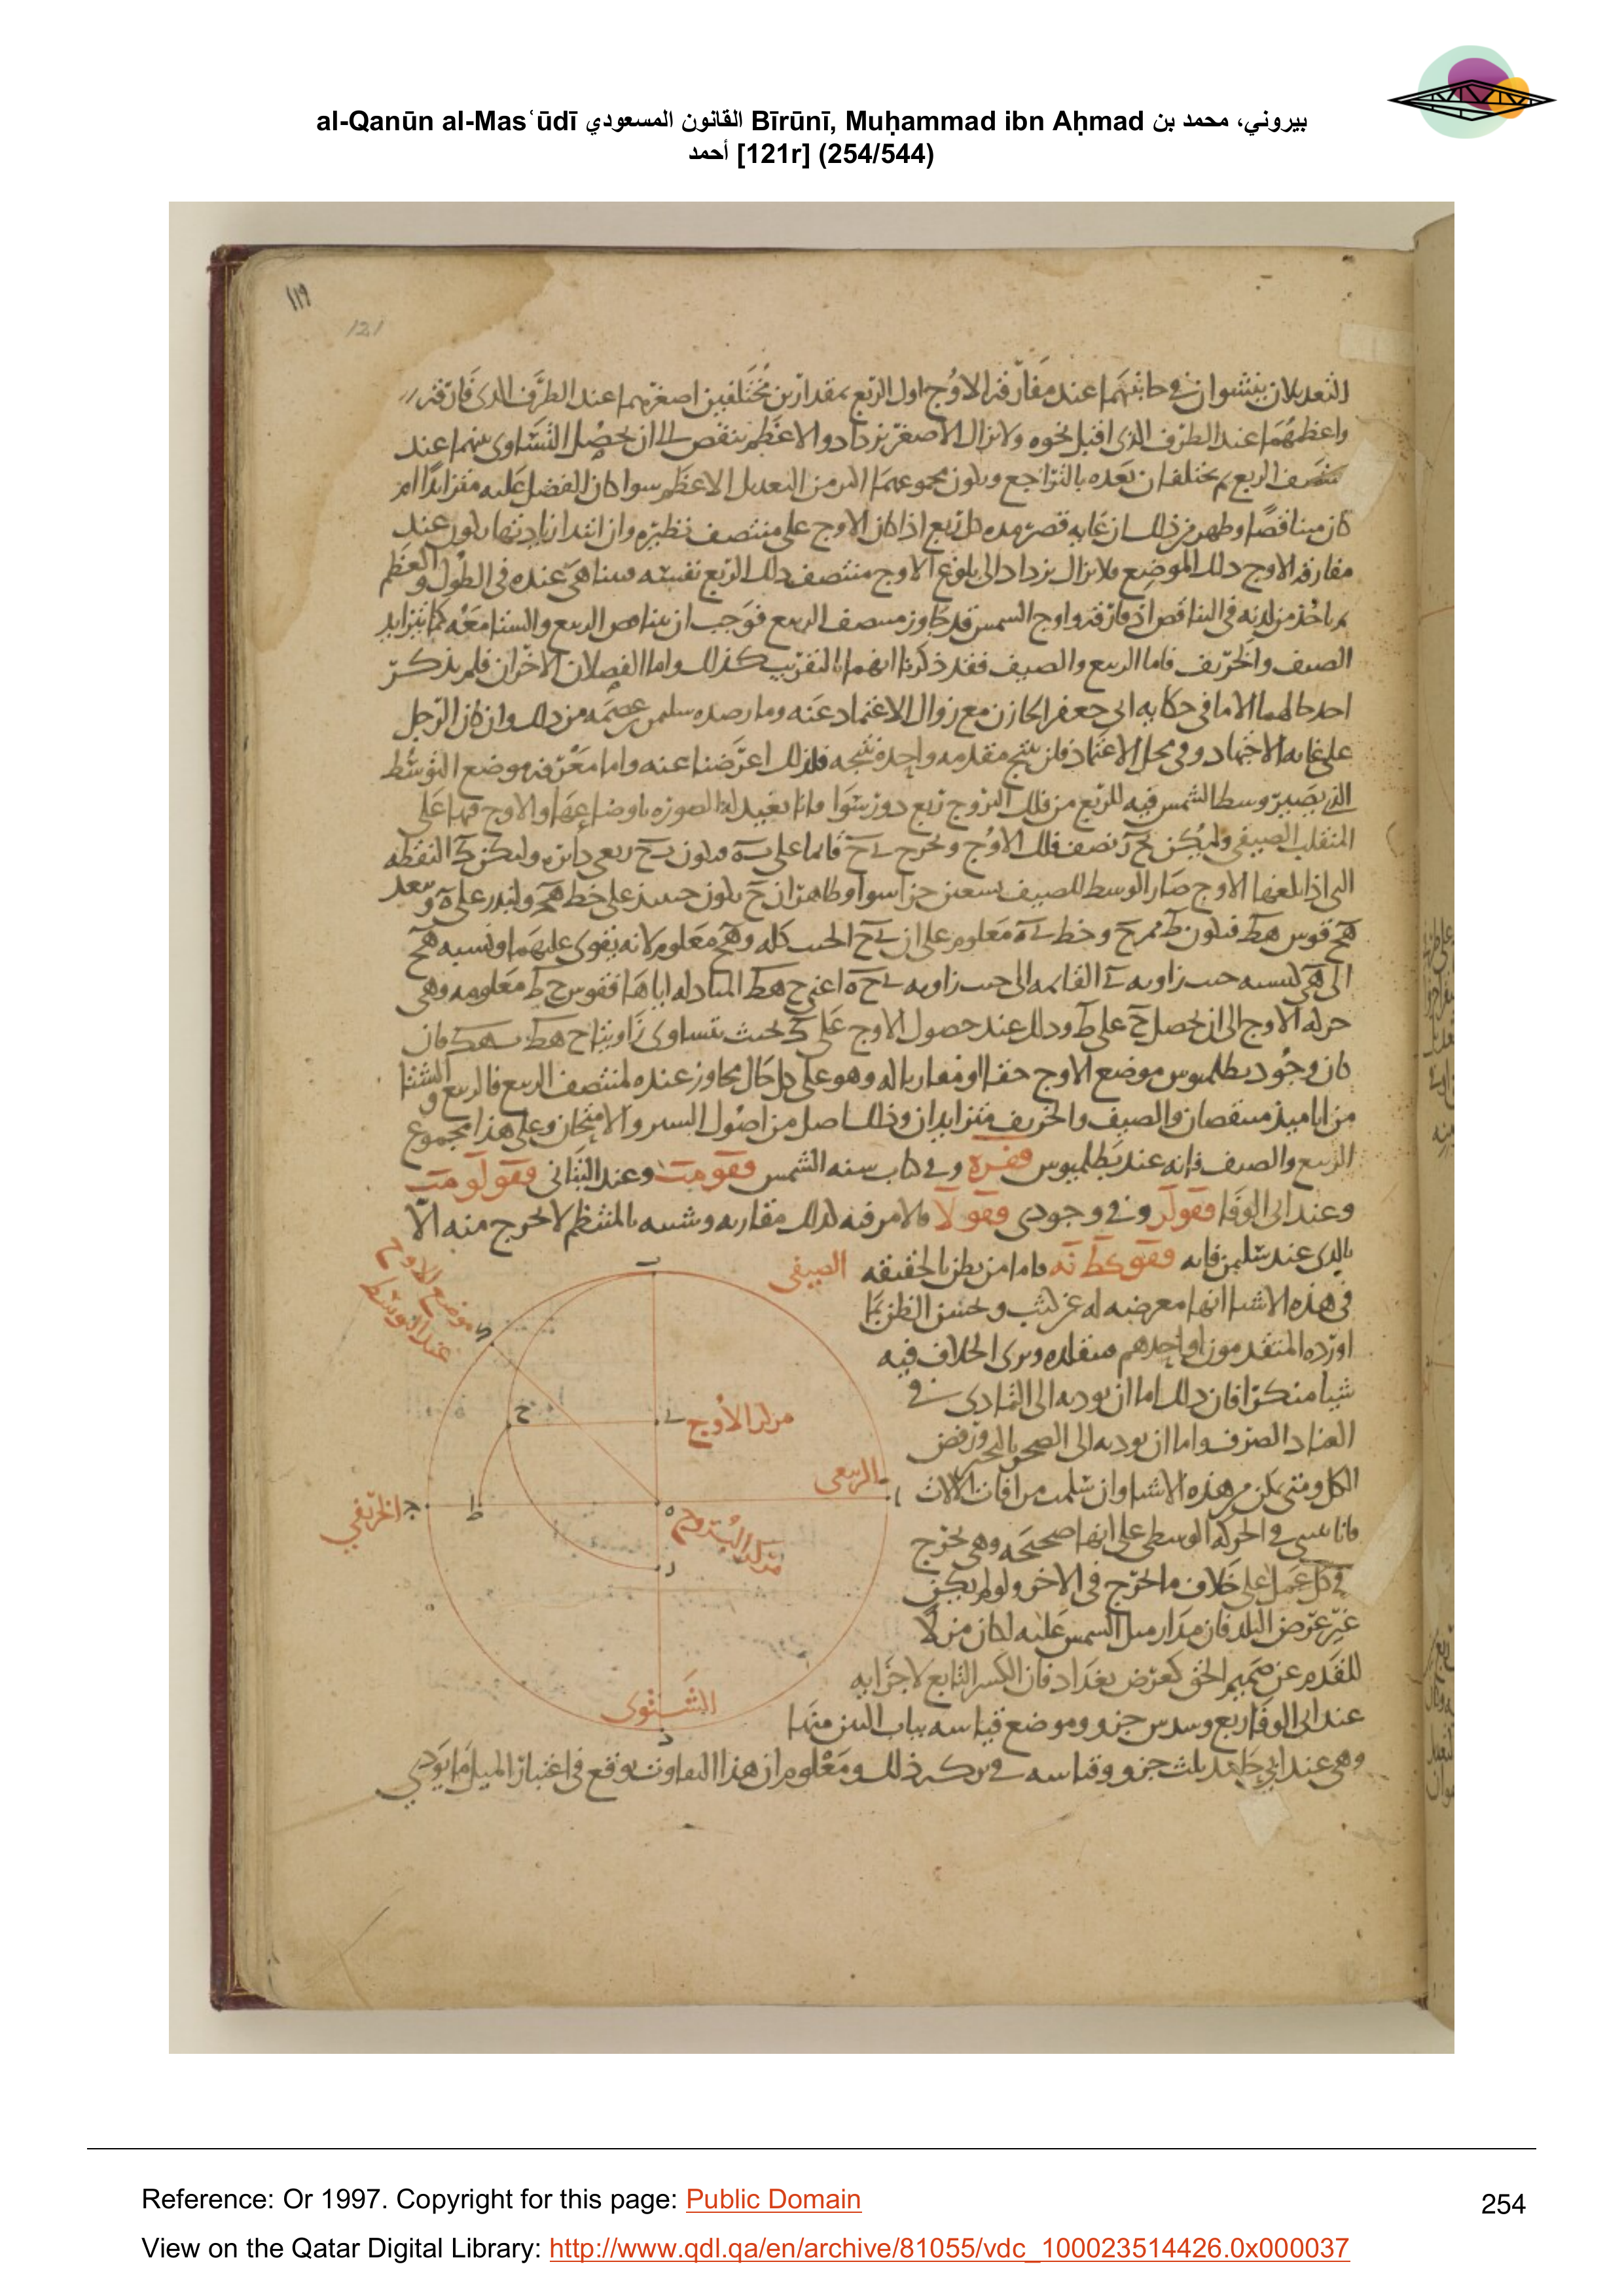 al-Qanūn al-Masʿūdī القانون المسعودي Bīrūnī, Muḥammad ibn Aḥmad بيروني، محمد بن
أحمد [121r] (254/544)
١١٩
121
التعديلان ينشوان في حاشيتهما عند مفارقة الاوج اول الربع بمقدارين مختلفين اصغرهما عند الطرف الذى فارقه
واعظمهما عند الطرف الذى اقبل نحوه ولا يزال الاصغر يزداد والاعظم ينقص الى ان يحصل التساوى بينهما عند
منتصف الربع ثم يختلفان بعده بالتراجع ويكون مجموعهما اكثر من التعديل الاعظم سوا كان الفضل عليه متزايدا ام
كان متناقصا وظهر من ذلك ان غاية قصر مدة كل ربع اذا كان الاوج على منتصف نظيره وان ابتدا زيادتها يكون عند
مفارقة الاوج ذلك الموضع ولا يزال يزداد الى بلوغ الاوج منتصف ذلك الربع نفسه فيتناهى عنده في الطول والعظم
ثم ياخذ من لدنه في التناقص اذ فارقه واوج الشمس قد جاوز منتصف الربيع فوجب ان يتناقص الربيع والشتا معه كما يتزايد
الصيف والخريف فاما الربيع والصيف فقد ذكرنا انهما بالتقريب كذلك واما الفصلان الاخران فلم يذكر
احد حالهما الا ما في حكاية ابى جعفر الخازن مع زوال الاعتماد عنه وما رصده سليمن بن عصمه من ذلك وان كان الرجل
على غاية الاجتهاد وفي محل الاعتماد فلن ينتج مقدمه واحدة نتيجه فلذلك اعرضنا عنه واما معرفة موضع التوسط
الذى يصير وسط الشمس فيه للربع من فلك البروج ربع دور سوا فانا نعيد له الصورة باوضاعها والاوج فيها على
المنقلب الصيفى وليكن نصف فلك الاوج ونخرج ى ح قائما على ب ه فيكون ى ح ربع دائرة وليكن ك النقطه
التى اذا بلغها الاوج صار الوسط للصيف تسعين جزا سوا وظاهر ان ح يكون حينئذ على خط ه ج ولندر على ه وببعد
ه ح قوس ح ط فيكون ط ممر ح وخط ى ه معلوم على ان ى ح الجيب كله و ه ح معلوم لانه يقوى عليهما ونسبه ه ح
الى ه ى كنسبه جيب زاويه ى القائمه الى جيب زاويه ى ح ه اعنى ح ه ط المبادله اياها فقوس ح ط معلومه وهى
حركه الاوج الى ان يحصل ح على ط وذلك عند حصول الاوج على ك بحيث يتساوى زاويتا ح ه ط ب ه ك فان
كان وجود بطلميوس موضع الاوج حقا او مقاربا له وهو على كل حال مجاوز عنده لمنتصف الربيع فالربيع والشتا
من اياميذ منتقصان والصيف والخريف متزايدان وذلك اصل من اصول السبر والامتحان وعلى هذا مجموع
الربيع والصيف فانه عند بطلميوس وفي كتاب سنه الشمس وعند البتانى
وعند ابى الوفا وفي وجودى فالامر فيه لذلك مقاربه وشبيه بالمنتظم لا يخرج منه الا
بالذى عند سليمن فانه فاما من يظن بالحقيقه
في هذه الاشيا انها معرضه له عن كثب ويحسن الظن بما
اورده المتقدمون او احدهم فيقلده ويرى الخلاف فيه
شيا منكرا فان ذلك اما ان يوديه الى التمادى في
العناد الصرف واما ان يوديه الى الصحو ورفض
الكل ومتى يمكن من هذه الاشيا وان سلمت من افات الالات
فانا في الحركه الوسطى على انها صحيحه وهى تخرج
في كل عمل على خلاف ما تخرج في الاخر ولو لم يكن
غير عرض البلد فان مدار ميل الشمس عليه لكان
للقدم عن صميم الحق كعرض بغداد فان الكسر التابع لاجزايه
عند ابى الوفا ربع وسدس جزو وموضع قياسه بباب التبن منها
وهى عند ابى حامد ثلث جزو وقياسه في بركه زلل ومعلوم ان هذا التفاوت يوقع في اعتبار الميل ما يودى
الصيفى
موضع الاوج
عند التوسط
مركز الاوج
الربيعى
الخريفي
مركز البروج
الشتوى
ب
ك
ح
ى
ا
ج
ط
ه
ر
د
Reference: Or 1997. Copyright for this page: Public Domain
254
View on the Qatar Digital Library: http://www.qdl.qa/en/archive/81055/vdc_100023514426.0x000037